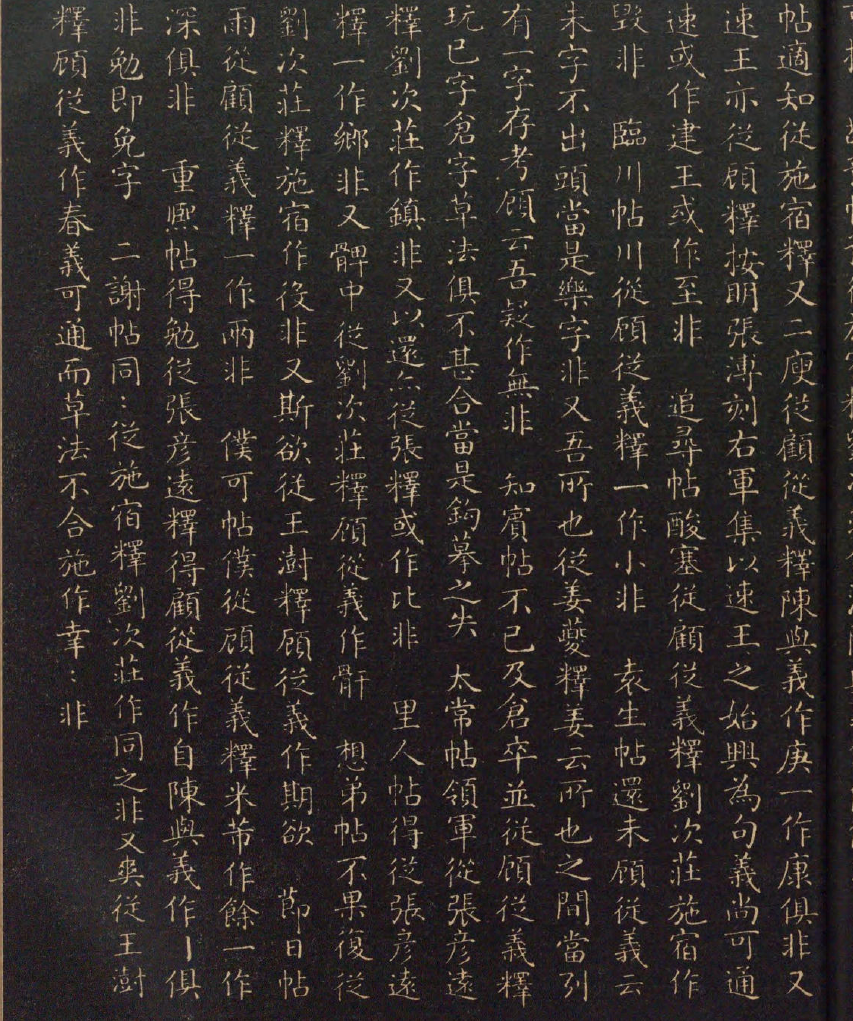 帖適知從施宿釋又二庾從顧從義釋陳與義作庚一作康俱非又
速王亦從顧釋按明張溥刻右軍集以速王之始興為句義尚可通
速或作建王或作至非　追尋帖酸塞從顧從義釋劉次莊施宿作
毀非　臨川帖川從顧從義釋一作小非　袁生帖還未顧從義云
未字不出頭當是樂字非又吾所也從姜夔釋姜云所也之間當列
有一字存考顧云吾疑作無非　知賓帖不已及倉卒並從顧從義釋
玩已字倉字草法俱不甚合當是鈎摹之失　太常帖領軍從張彥遠
釋劉次莊作鎮非又以還從張釋或作比非　里人帖得從張彥遠
釋一作鄉非又髀中從劉次莊釋顧從義作骭　想弟帖不果復從
劉次莊釋施宿作後非又斯欲從王澍釋顧從義作期欲　節日帖
雨從顧從義釋一作兩非　僕可帖僕從顧從義釋米芾作餘一作
深俱非　重熙帖得勉從張彥遠釋得顧從義作自陳與義作丨俱
非勉即免字　二謝帖同〻從施宿釋劉次莊作同之非又奭從王澍
釋顧從義作春義可通而草法不合施作幸〻非